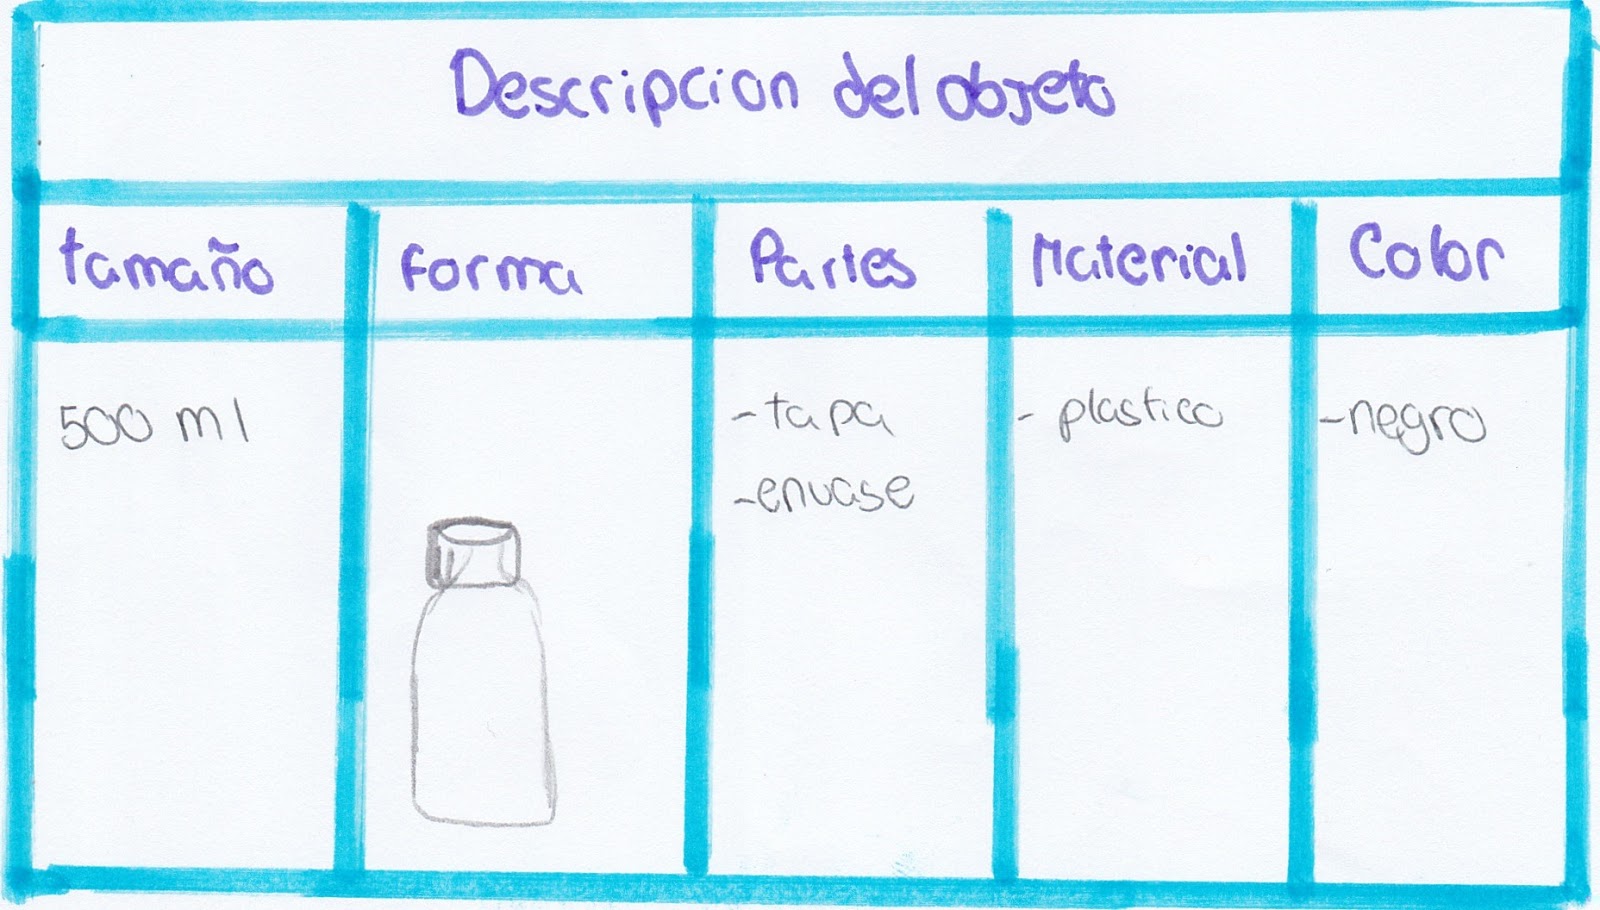 Descripcion del objeto
tamaño
forma
Partes
Material
Color
500 ml
-tapa
-envase
- plastico
-negro